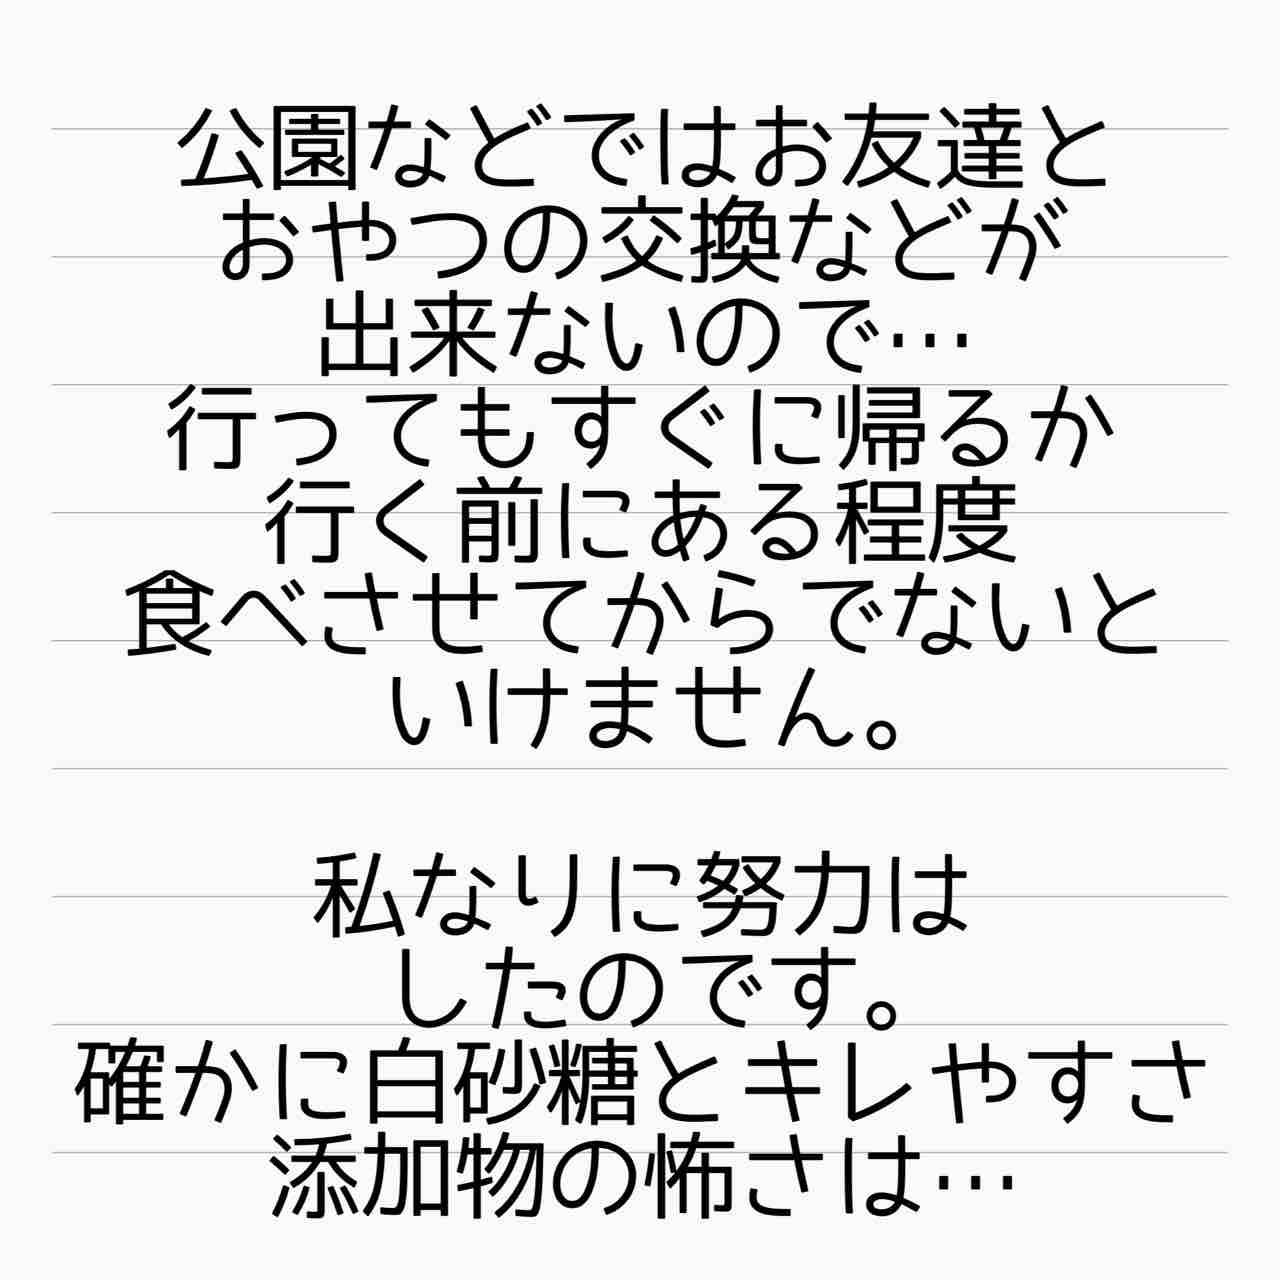 公園などではお友達と
おやつの交換などが
出来ないので…
行ってもすぐに帰るか
行く前にある程度
食べさせてからでないと
いけません。
私なりに努力は
したのです。
確かに白砂糖とキレやすさ
添加物の怖さは…